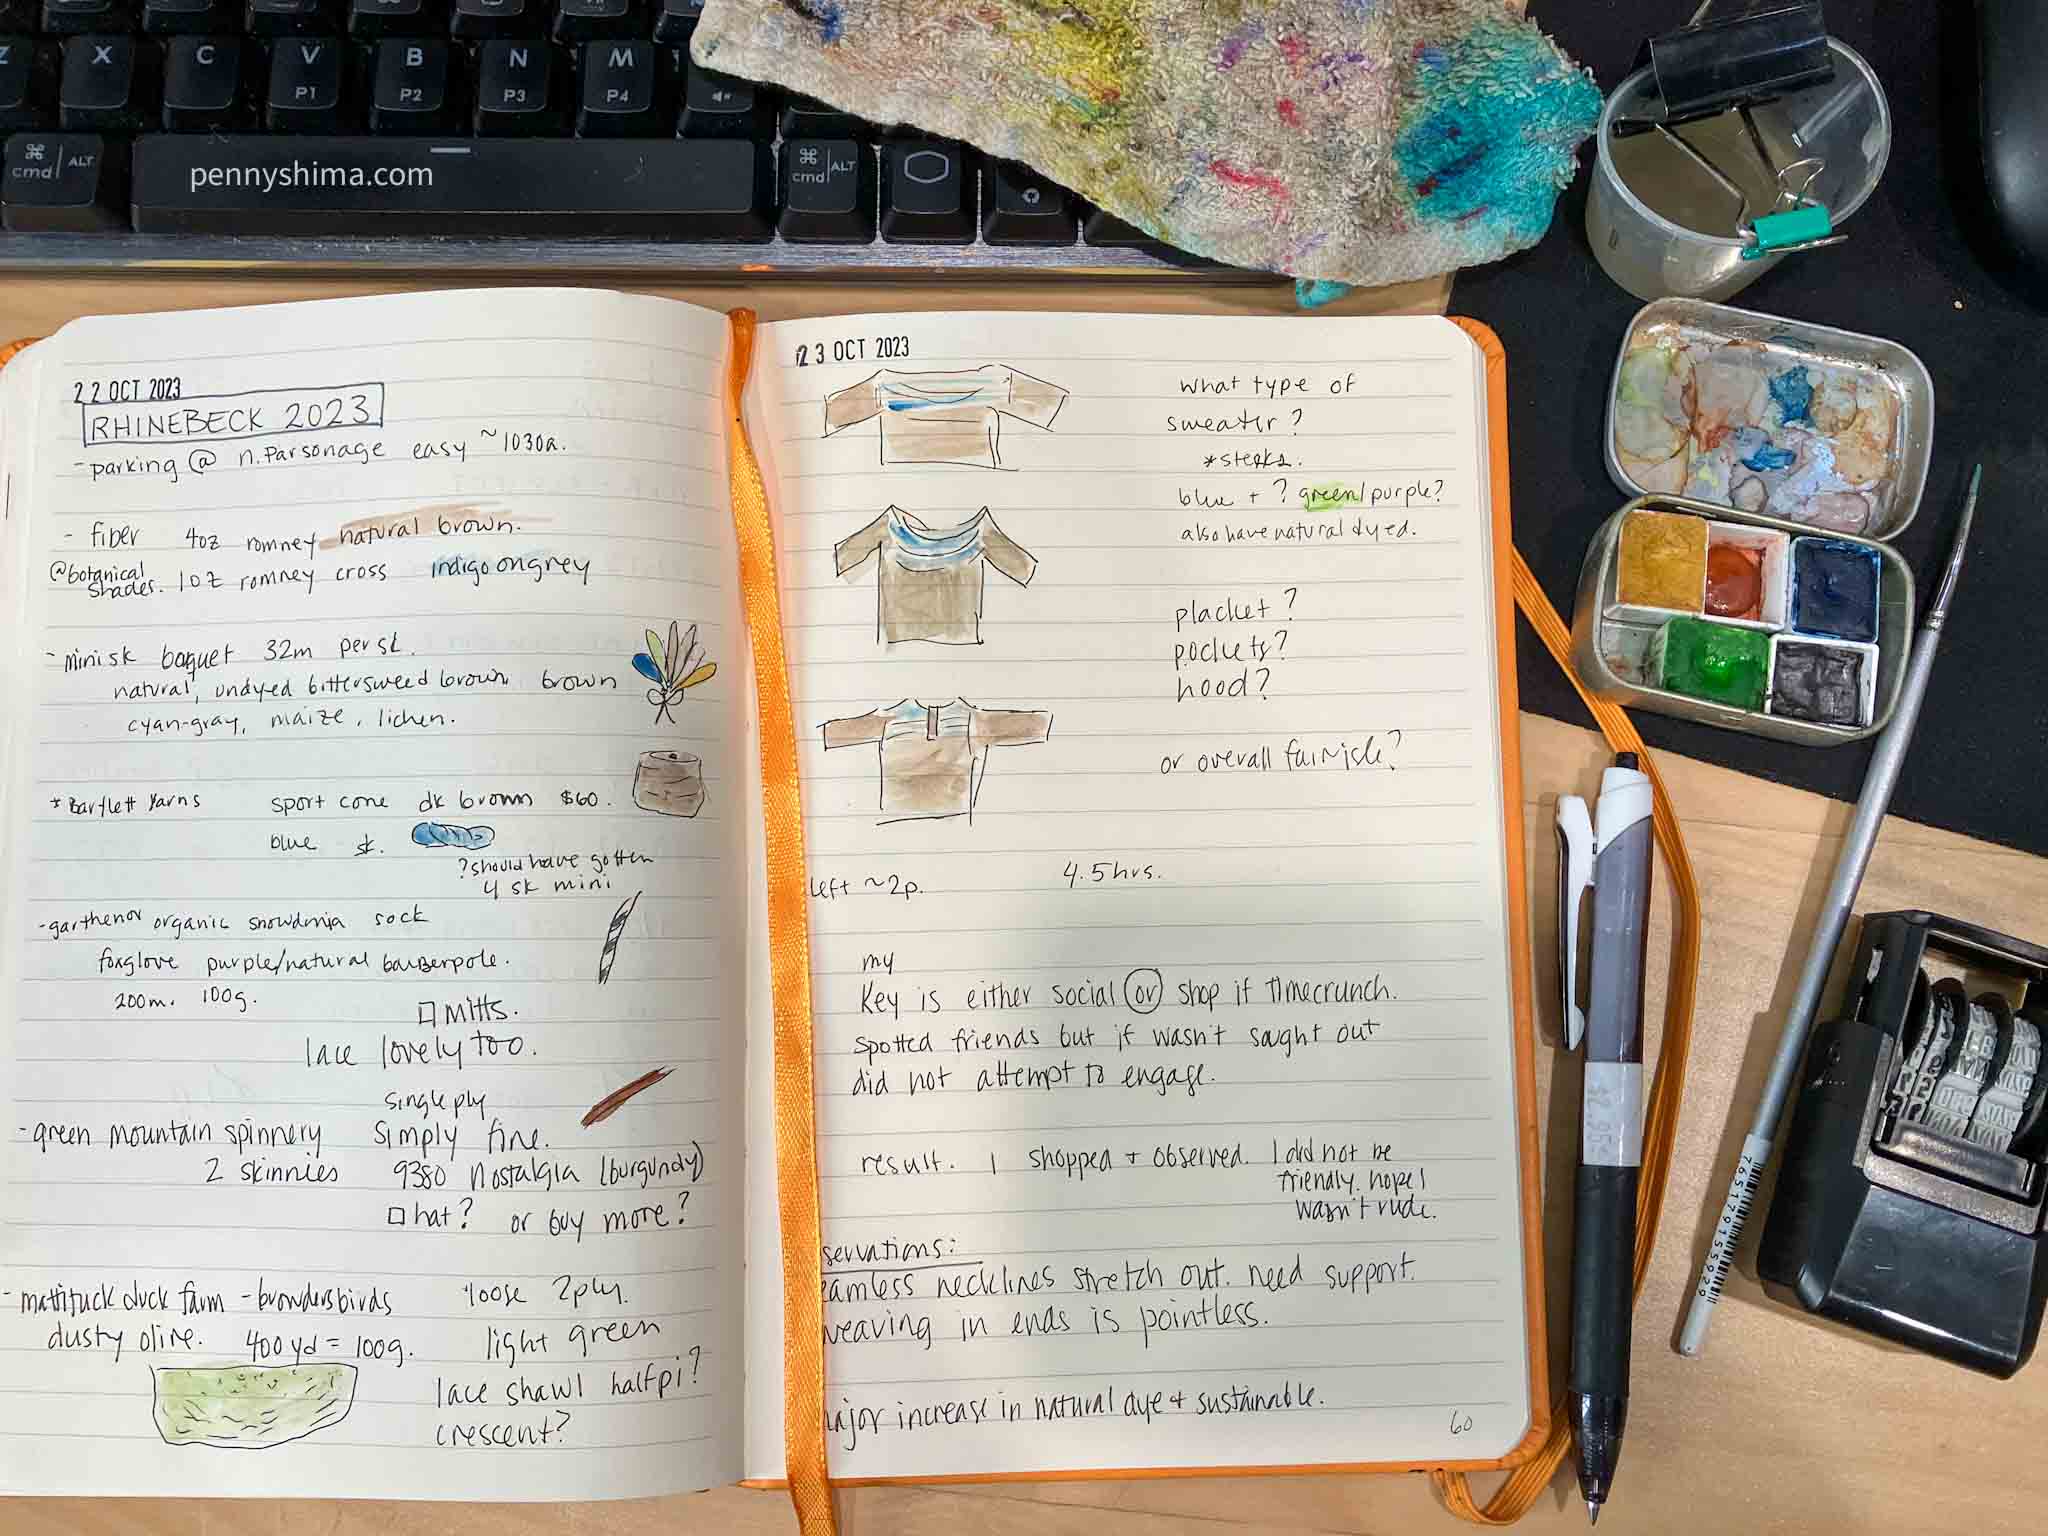 Z X C V B N M
P1 P2 P3 P4
cmd ALT
cmd ALT
pennyshima.com
22 OCT 2023
RHINEBECK 2023
- parking @ n. Parsonage easy ~1030a.
- fiber 4oz romney natural brown.
@botanical shades. 1oz romney cross indigo on grey
- mini sk boquet 32m per sk.
natural, undyed bittersweed brown, brown
cyan-gray, maize, lichen.
* Bartlett Yarns sport cone dk brown $60.
blue sk.
? should have gotten
4 sk mini
- garthenor organic snowdonia sock
foxglove purple/natural barberpole.
200m. 100g.
□ mitts.
lace lovely too.
single ply
- green mountain spinnery simply fine.
2 skinnies 9380 nostalgia (burgundy)
□ hat? or buy more?
- mattituck duck farm - browdersbirds loose 2ply.
dusty olive. 400yd = 100g. light green
lace shawl halfpi?
crescent?
23 OCT 2023
what type of
sweater?
blue + ? green/purple?
also have natural dyed.
placket?
pockets?
hood?
or overall fairisle?
left ~2p. 4.5hrs.
my
Key is either social or shop if timecrunch.
Spotted friends but if wasn't saught out
did not attempt to engage.
result. I shopped + observed. I did not be
friendly. hope I
wasn't rude.
servations:
eamless necklines stretch out. need support.
weaving in ends is pointless.
major increase in natural dye + sustainable.
60
765179155929